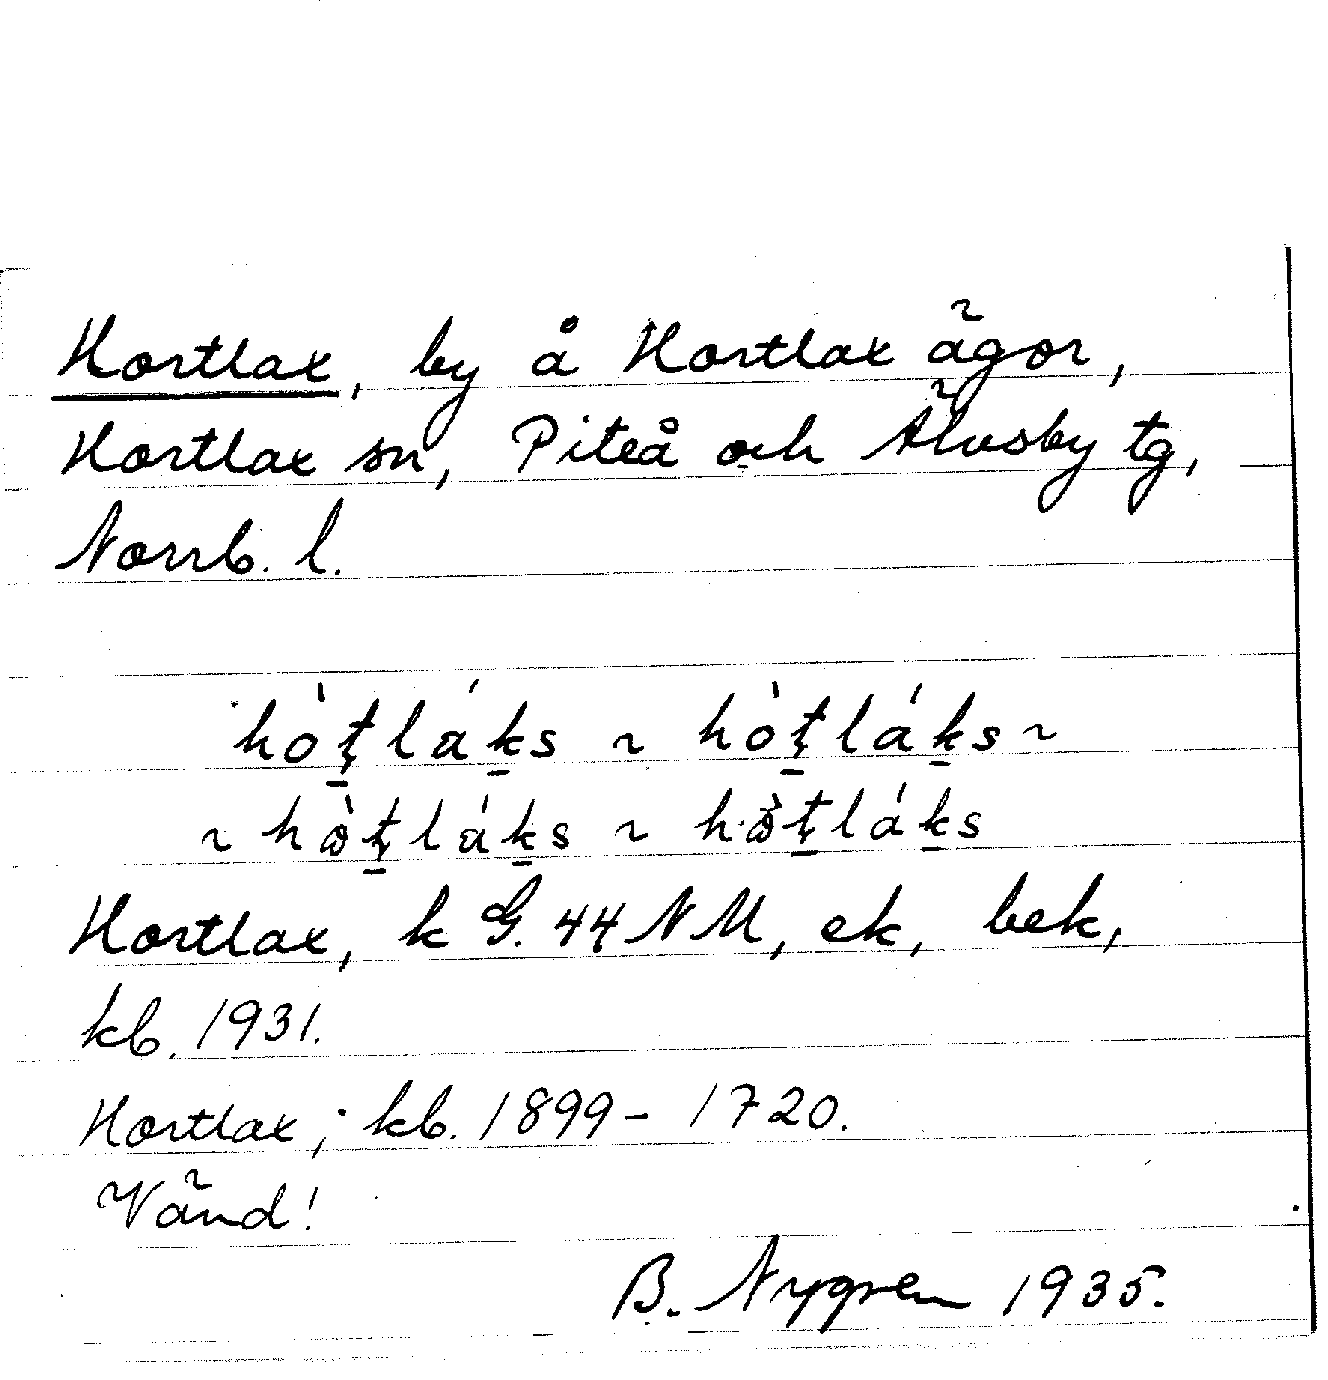 Hortlax, by å Hortlax ägor,
Hortlax sn, Piteå och Älvsby tg,
Norrb. l.
hò̱ţláḵs ~ hò̱ţláḵs ~
~ hò̱ţláḵs ~ hò̱ţláḵs
Hortlax, k G. 44 NM, ek, bek,
kb. 1931.
Hortlax; kb. 1899 - 1720.
Vänd!
B. Nygren 1935.